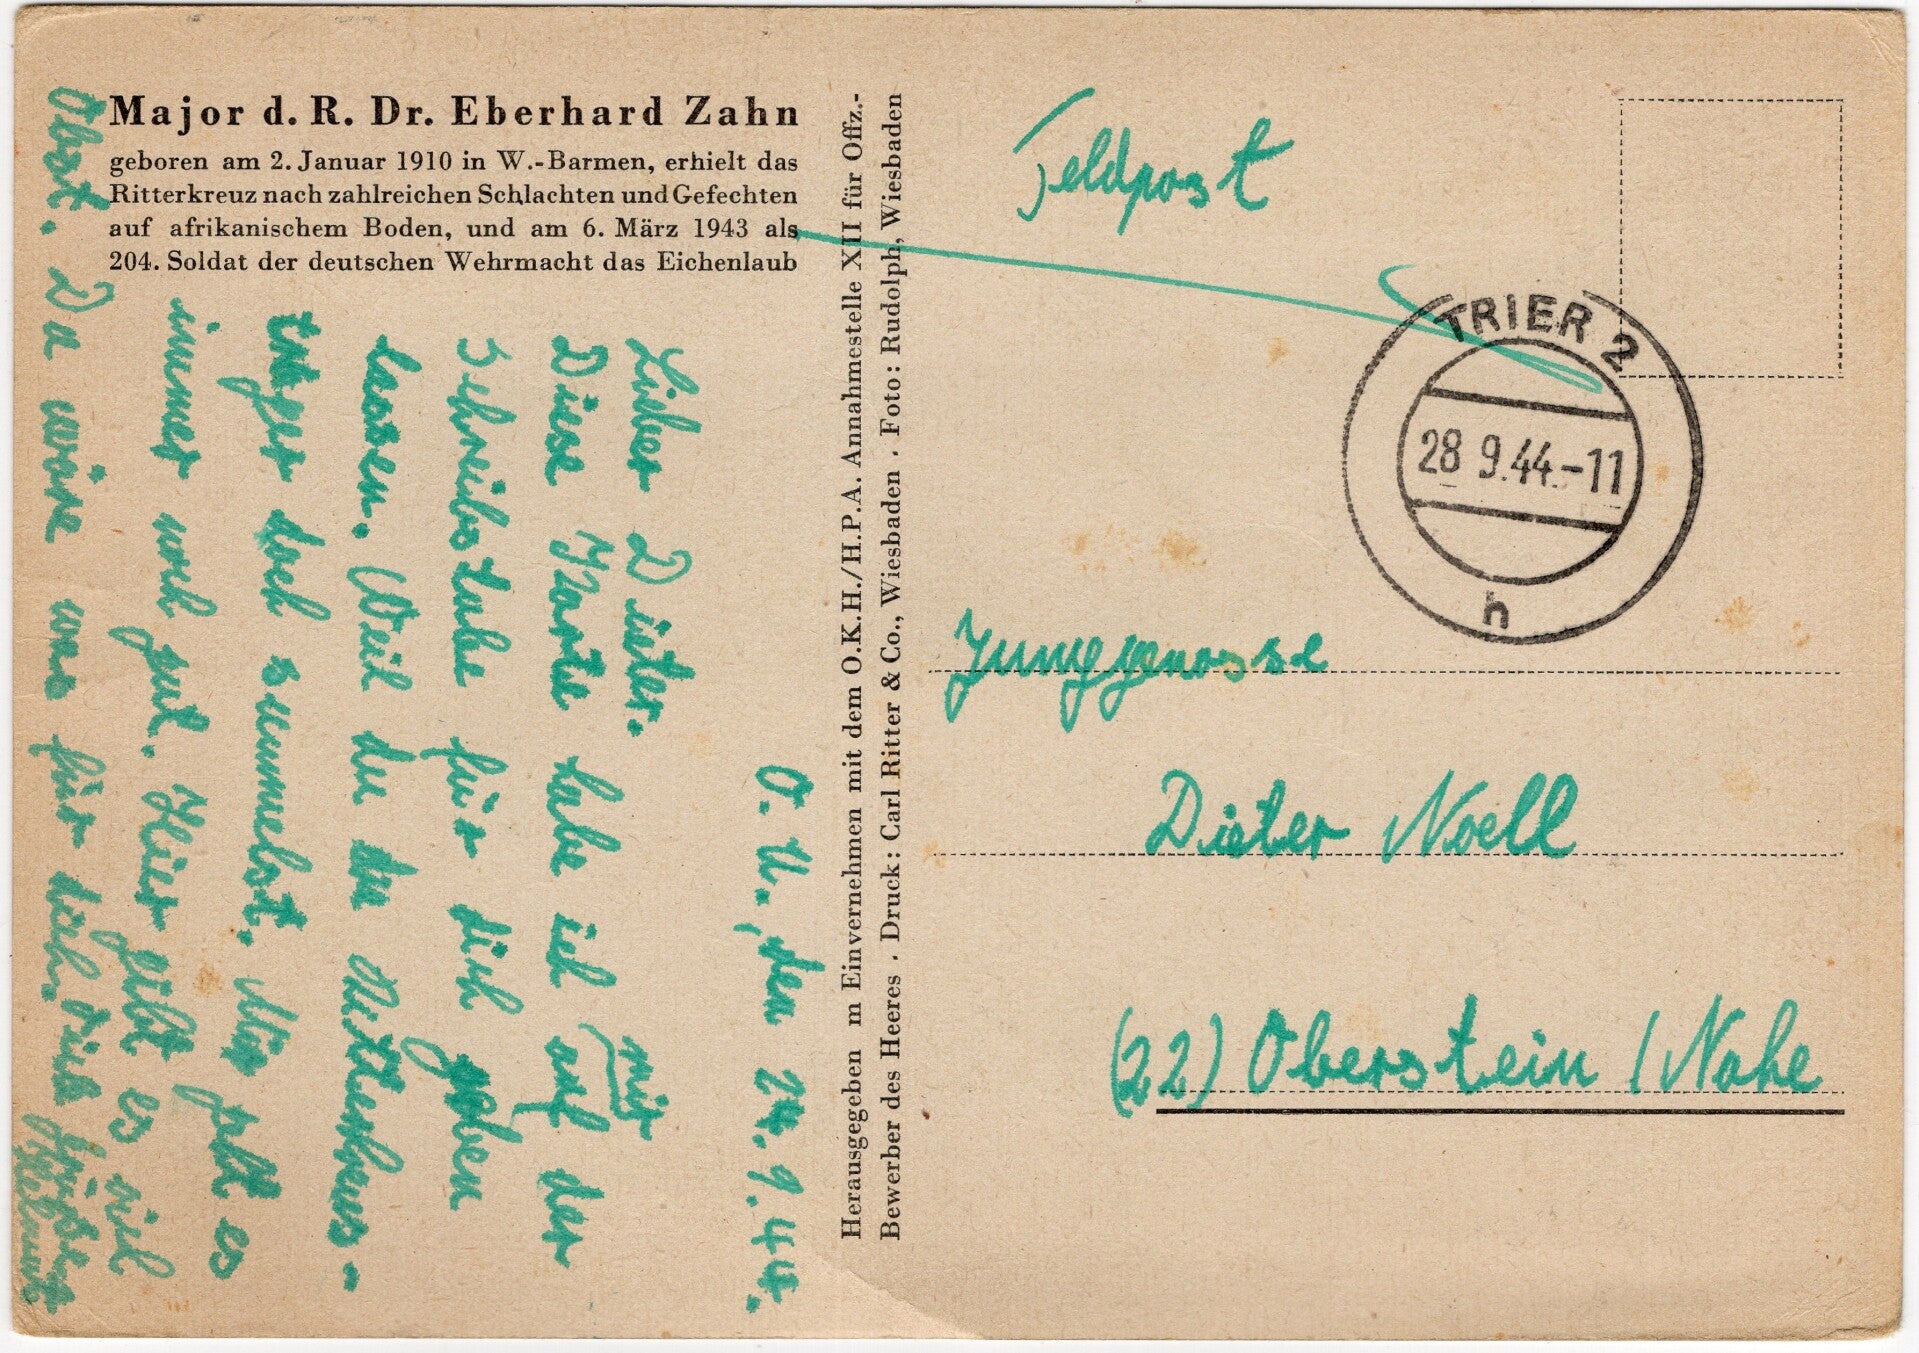 Major d. R. Dr. Eberhard Zahn
geboren am 2. Januar 1910 in W.-Barmen, erhielt das
Ritterkreuz nach zahlreichen Schlachten und Gefechten
auf afrikanischem Boden, und am 6. März 1943 als
204. Soldat der deutschen Wehrmacht das Eichenlaub
O.U., den 24. 9. 44.
Lieber Dieter.
Diese Karte habe ich mir auf der
Schreibstube für dich geben
lassen. Weil du die Ritterkreuz-
träger doch sammelst. Mir geht es
immer noch gut. Hier gibt es viel
Obst. Da wäre was für dich. Viele Grüße
Helmut
Herausgegeben m Einvernehmen mit dem O.K.H./H.P.A. Annahmestelle XII für Offz.-
Bewerber des Heeres · Druck: Carl Ritter & Co., Wiesbaden · Foto: Rudolph, Wiesbaden
Feldpost
TRIER 2
28 9.44.-11
h
Junggenosse
Dieter Noell
(22) Oberstein / Nahe